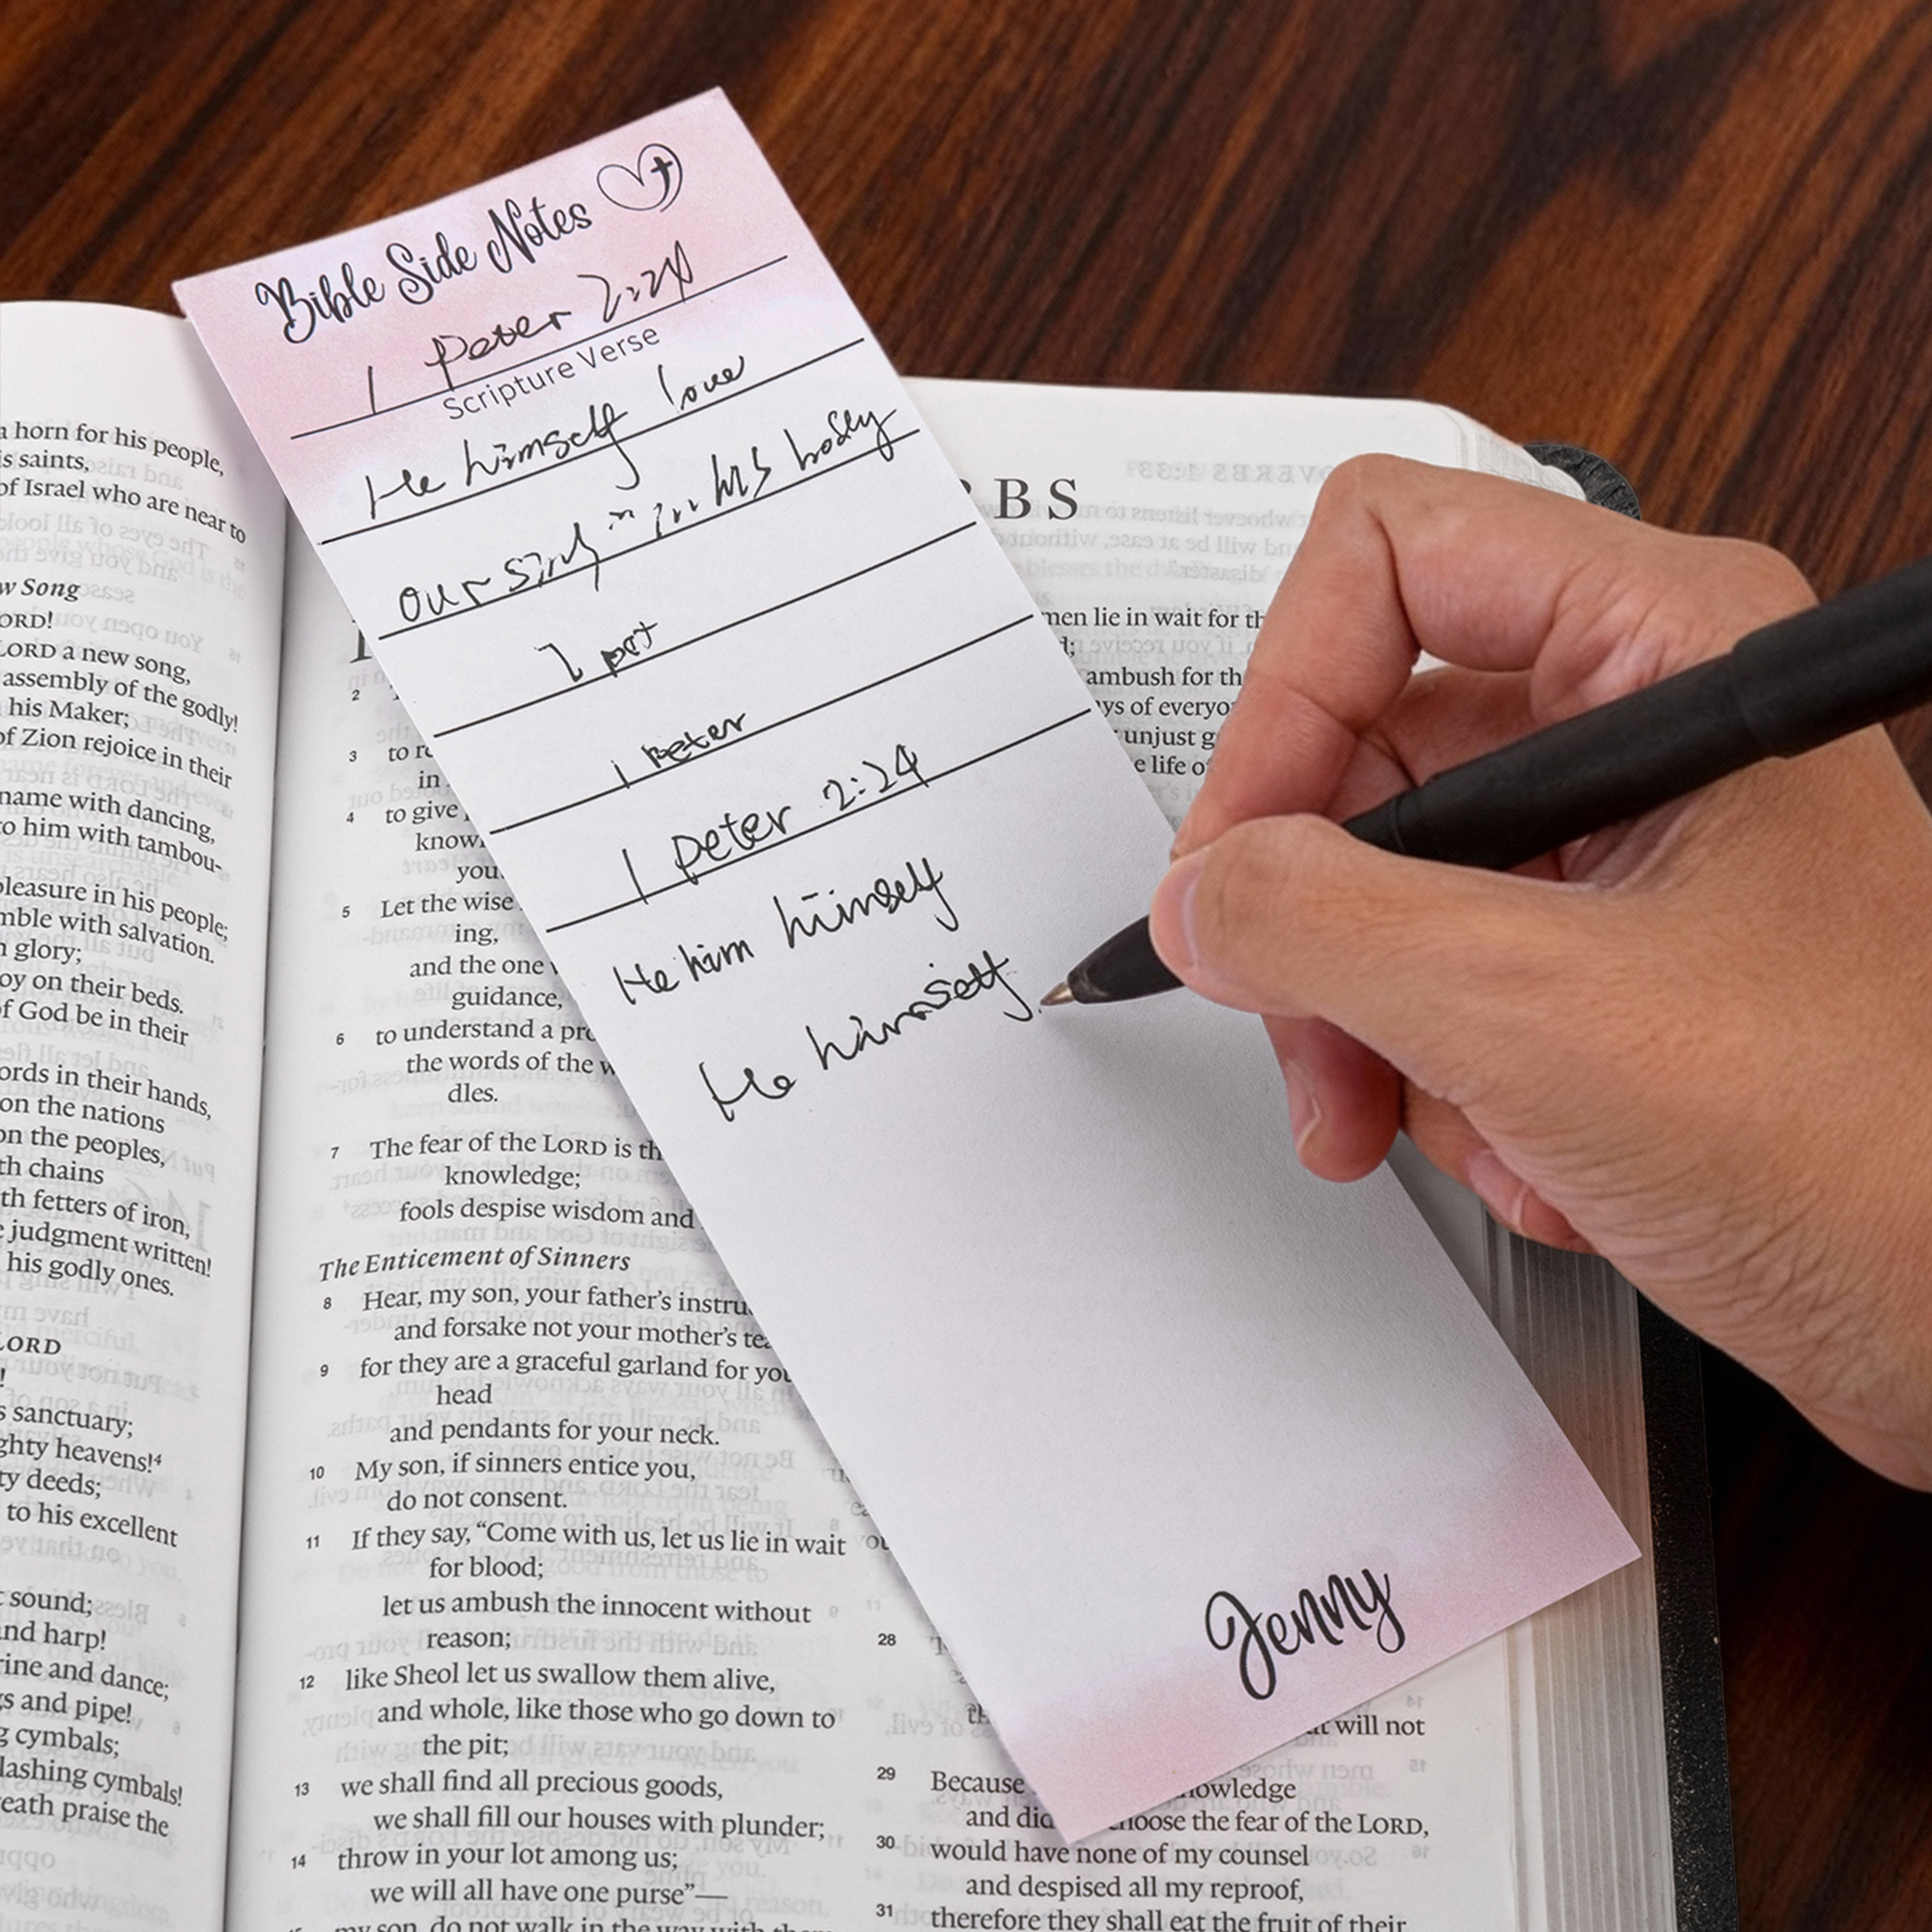 Bible Side Notes
1 Peter 2:24
Scripture Verse
He himself love
our in his body
1 Peter
1 peter 2:24
He him himself
He himself
Jenny
a horn for his people,
is saints,
of Israel who are near to
w Song
ORD!
LORD a new song,
assembly of the godly!
his Maker;
of Zion rejoice in their
name with dancing,
to him with tambou-
pleasure in his people;
mble with salvation.
n glory;
oy on their beds.
of God be in their
ords in their hands,
on the nations
on the peoples,
th chains
th fetters of iron,
judgment written!
his godly ones.
LORD
!
s sanctuary;
ghty heavens!⁴
ty deeds;
to his excellent
t sound;
and harp!
rine and dance;
gs and pipe!
g cymbals;
lashing cymbals!
eath praise the
BS
2
3 to re
in
4 to give
know
you
5 Let the wise
ing,
and the one
guidance,
6 to understand a pro
the words of the w
dles.
7 The fear of the LORD is th
knowledge;
fools despise wisdom and
The Enticement of Sinners
8 Hear, my son, your father's instru
and forsake not your mother's tea
9 for they are a graceful garland for you
head
and pendants for your neck.
10 My son, if sinners entice you,
do not consent.
11 If they say, "Come with us, let us lie in wait
for blood;
let us ambush the innocent without
reason;
12 like Sheol let us swallow them alive,
and whole, like those who go down to
the pit;
13 we shall find all precious goods,
we shall fill our houses with plunder;
14 throw in your lot among us;
we will all have one purse"—
my son, do not walk in the way with them
men lie in wait for th
d;
ambush for th
ys of everyo
unjust g
e life of
28
will not
29 Because knowledge
and did choose the fear of the LORD,
30 would have none of my counsel
and despised all my reproof,
31 therefore they shall eat the fruit of their